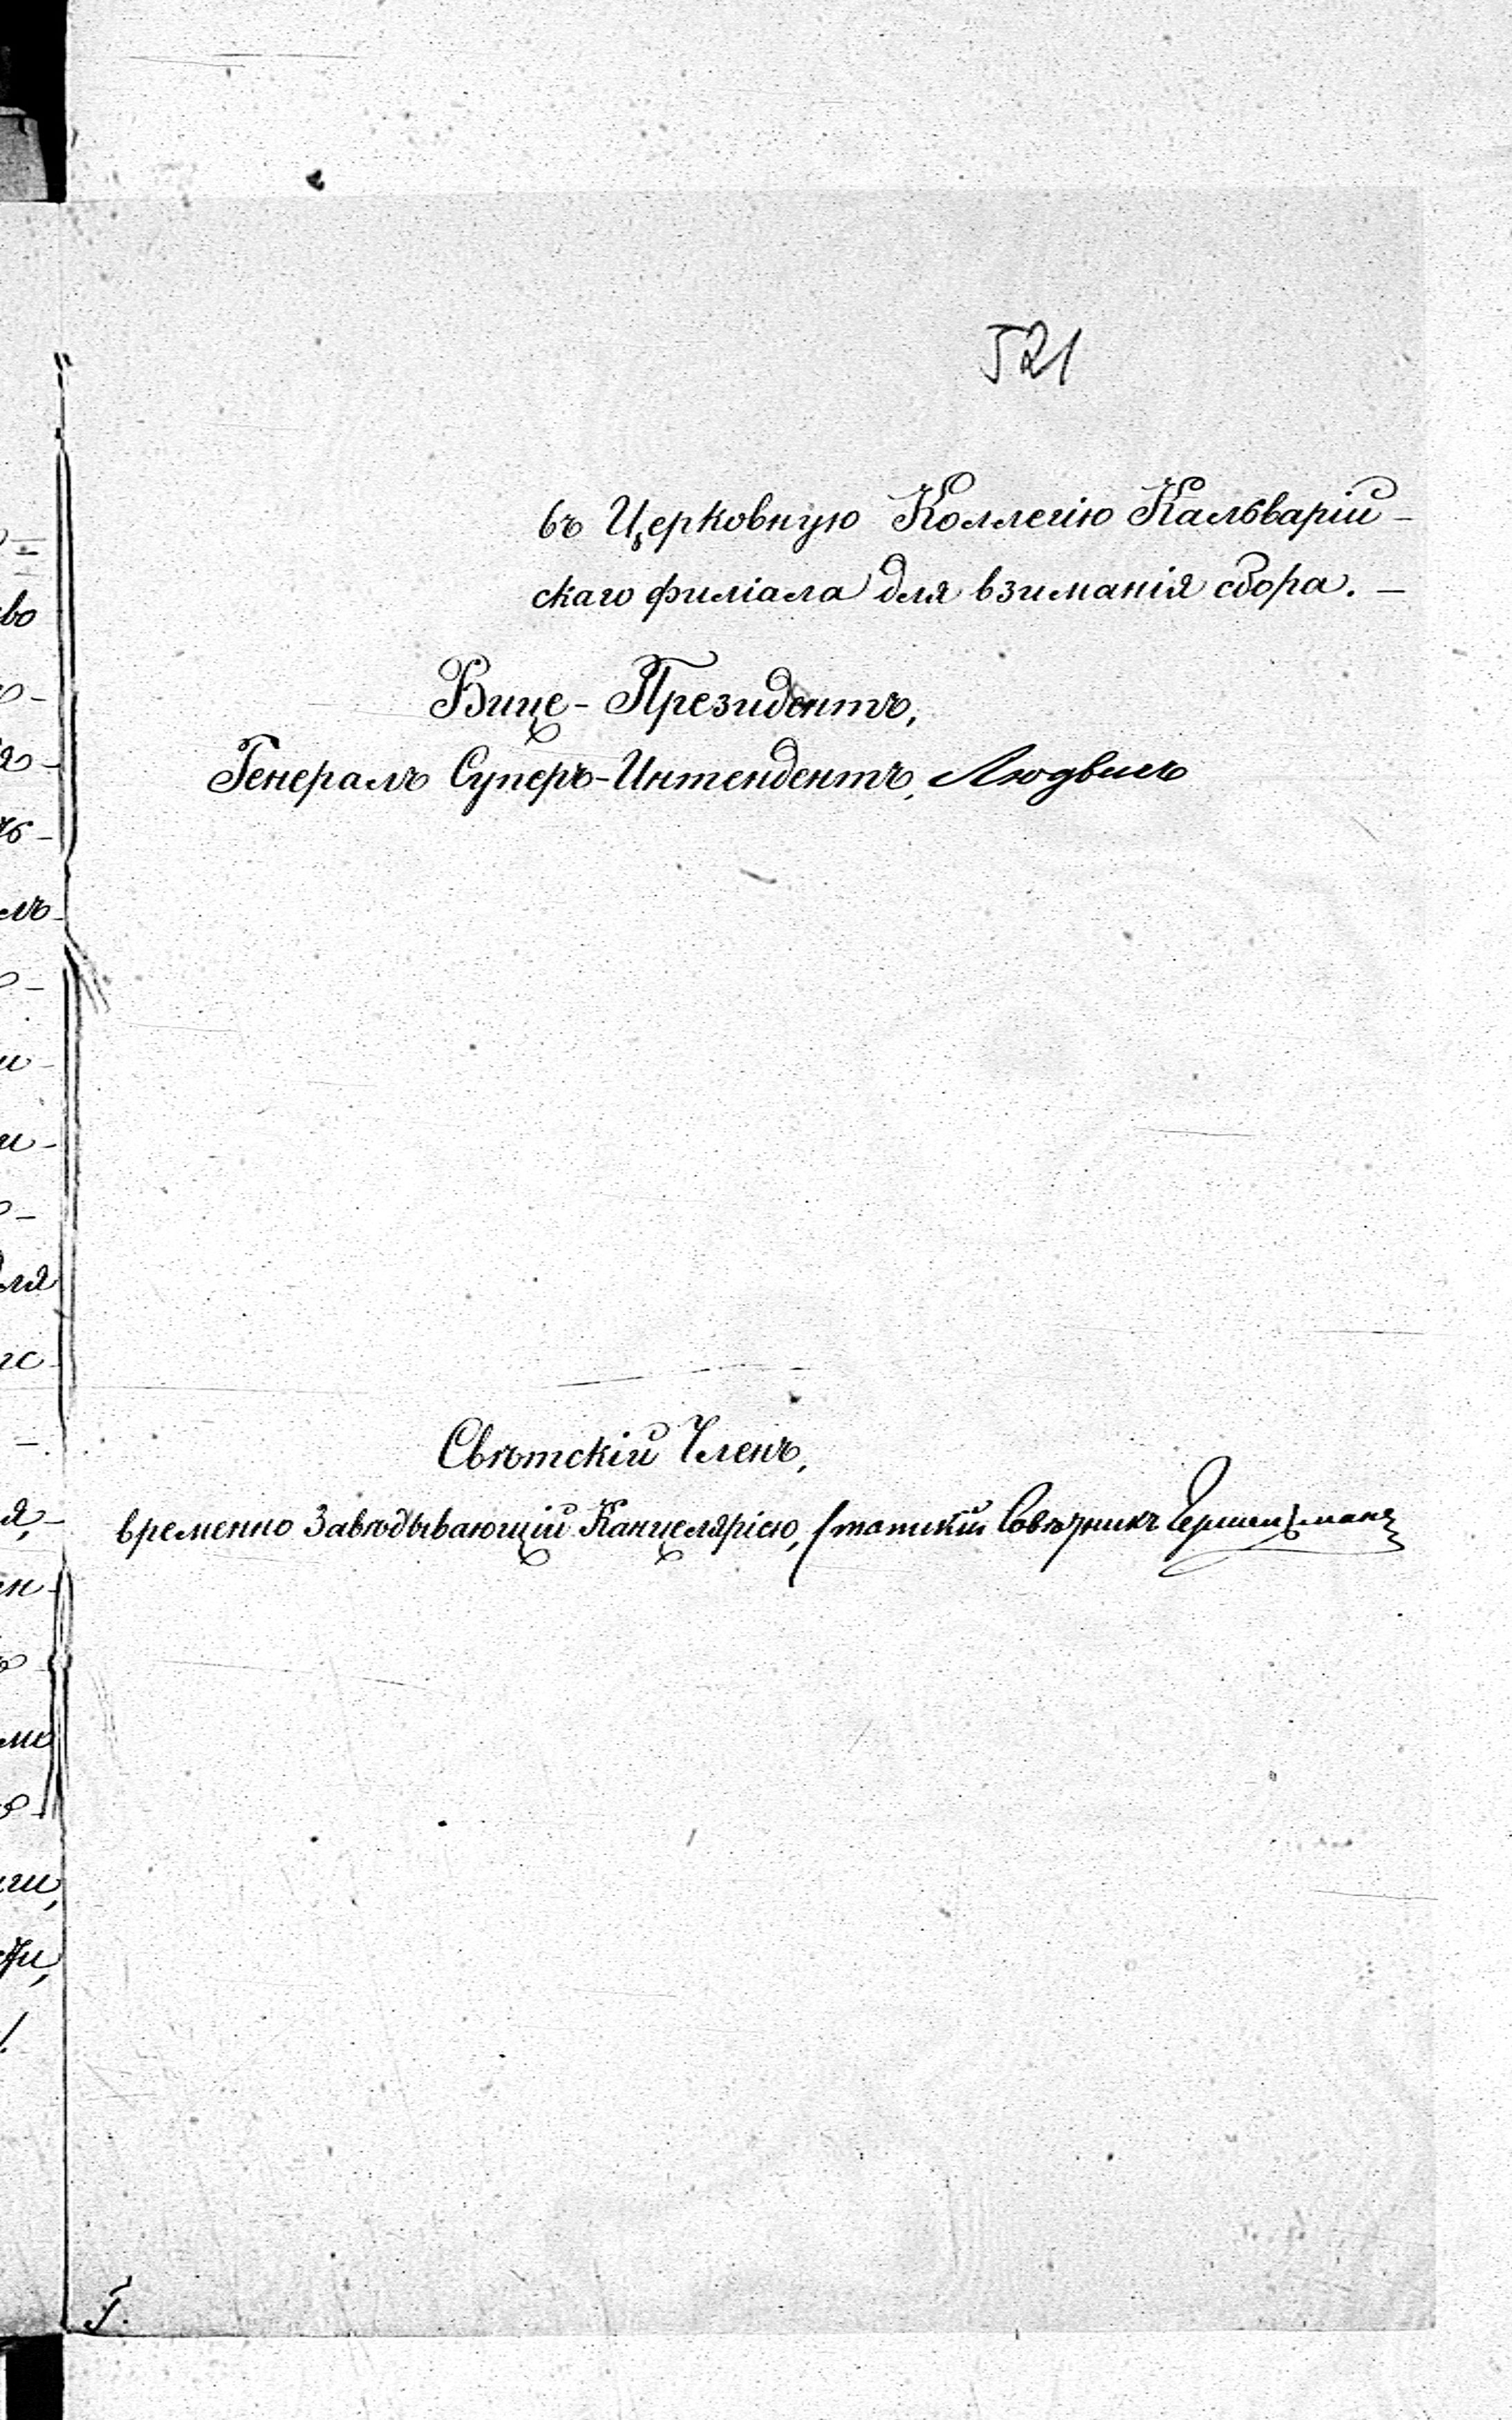 521
въ Церковную Коллегію Кальварій-
скаго филіала для взиманія сбора. —
Вице-Президентъ,
Генералъ Суперъ-Интендентъ, Людвигъ
Свѣтскій Членъ,
временно Завѣдывающій Канцеляріею, Статскій Совѣтникъ